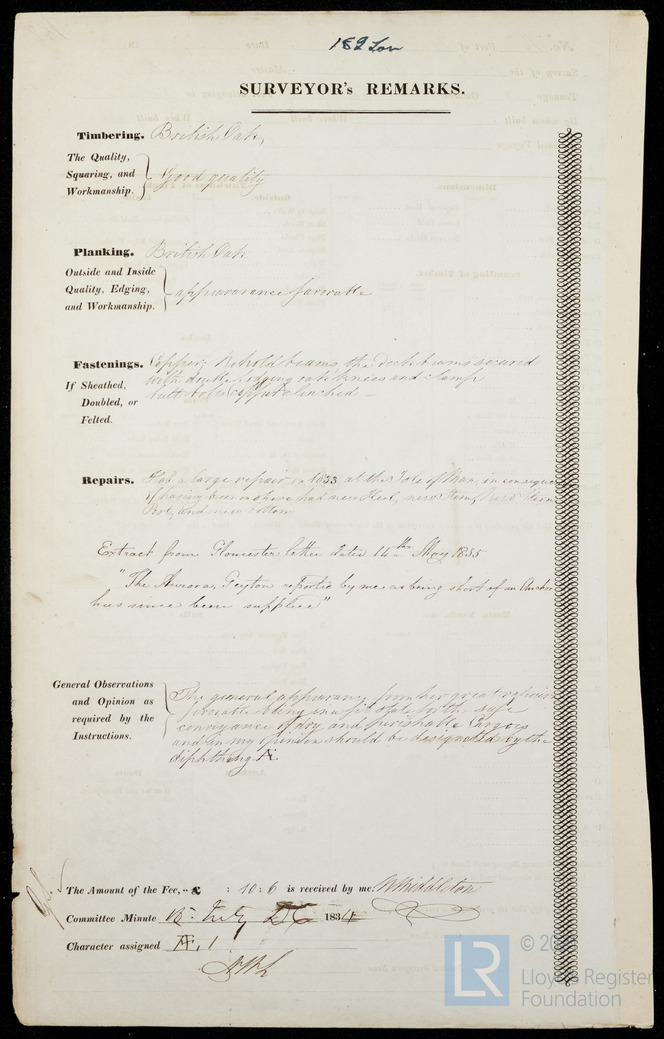 182 Lon
SURVEYOR's REMARKS.
Timbering. British Oak,
The Quality,
Squaring, and
Workmanship.
Good quality
Planking. British Oak
Outside and Inside
Quality, Edging,
and Workmanship.
appearance favorable
Fastenings. Copper; hold beams the Deck beams secured
If Sheathed,
Doubled, or
Felted.
with double oak knees and clamp
butt bolts clinched
Repairs. Had a large repair in 1833 at the Isle of Man, in consequence
of having been on shore had new Keel, new Stem, new Stern
Post, and new bottom
Extract from Gloucester letter dated 14th May 1835
"The Aurora, Peyton reported by me as being short of an Anchor
has since been supplied"
General Observations
and Opinion as
required by the
Instructions.
The general appearance from her great
being in a fit state for the safe
conveyance of dry and perishable Cargoes
and in my opinion should be designated by the
diphthong Æ
The Amount of the Fee, : 10 : 6 is received by me. Middleton
Committee Minute 15 July 1834
Character assigned Æ. 1
©
LR
Lloyd's Register
Foundation